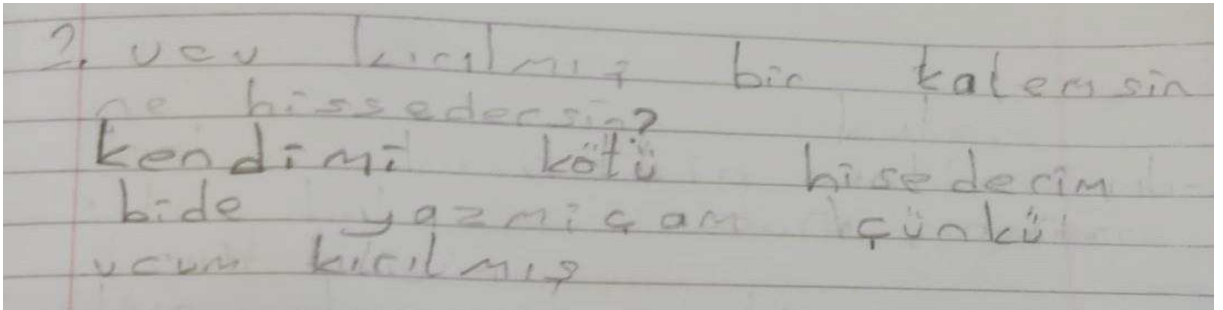 2. ucu kırılmış bir kalemsin
ne hissedersin?
kendimi kötü hisederim
bide yazmıçam çünkü
ucum kırılmış